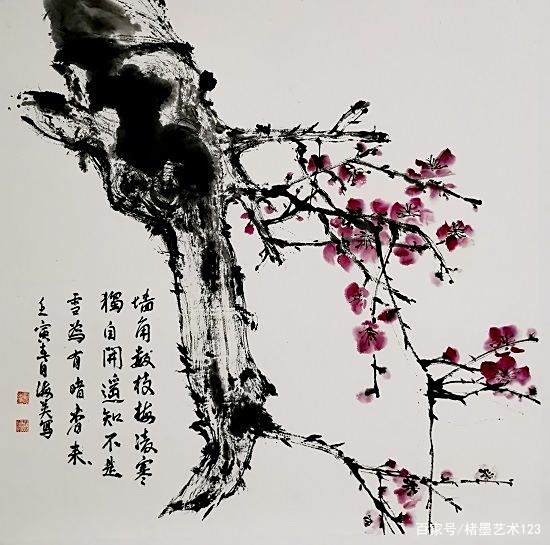 墙角数枝梅凌寒
獨自開遥知不是
雪為有暗香来
壬寅春月海英寫
百家号/楮墨艺术123